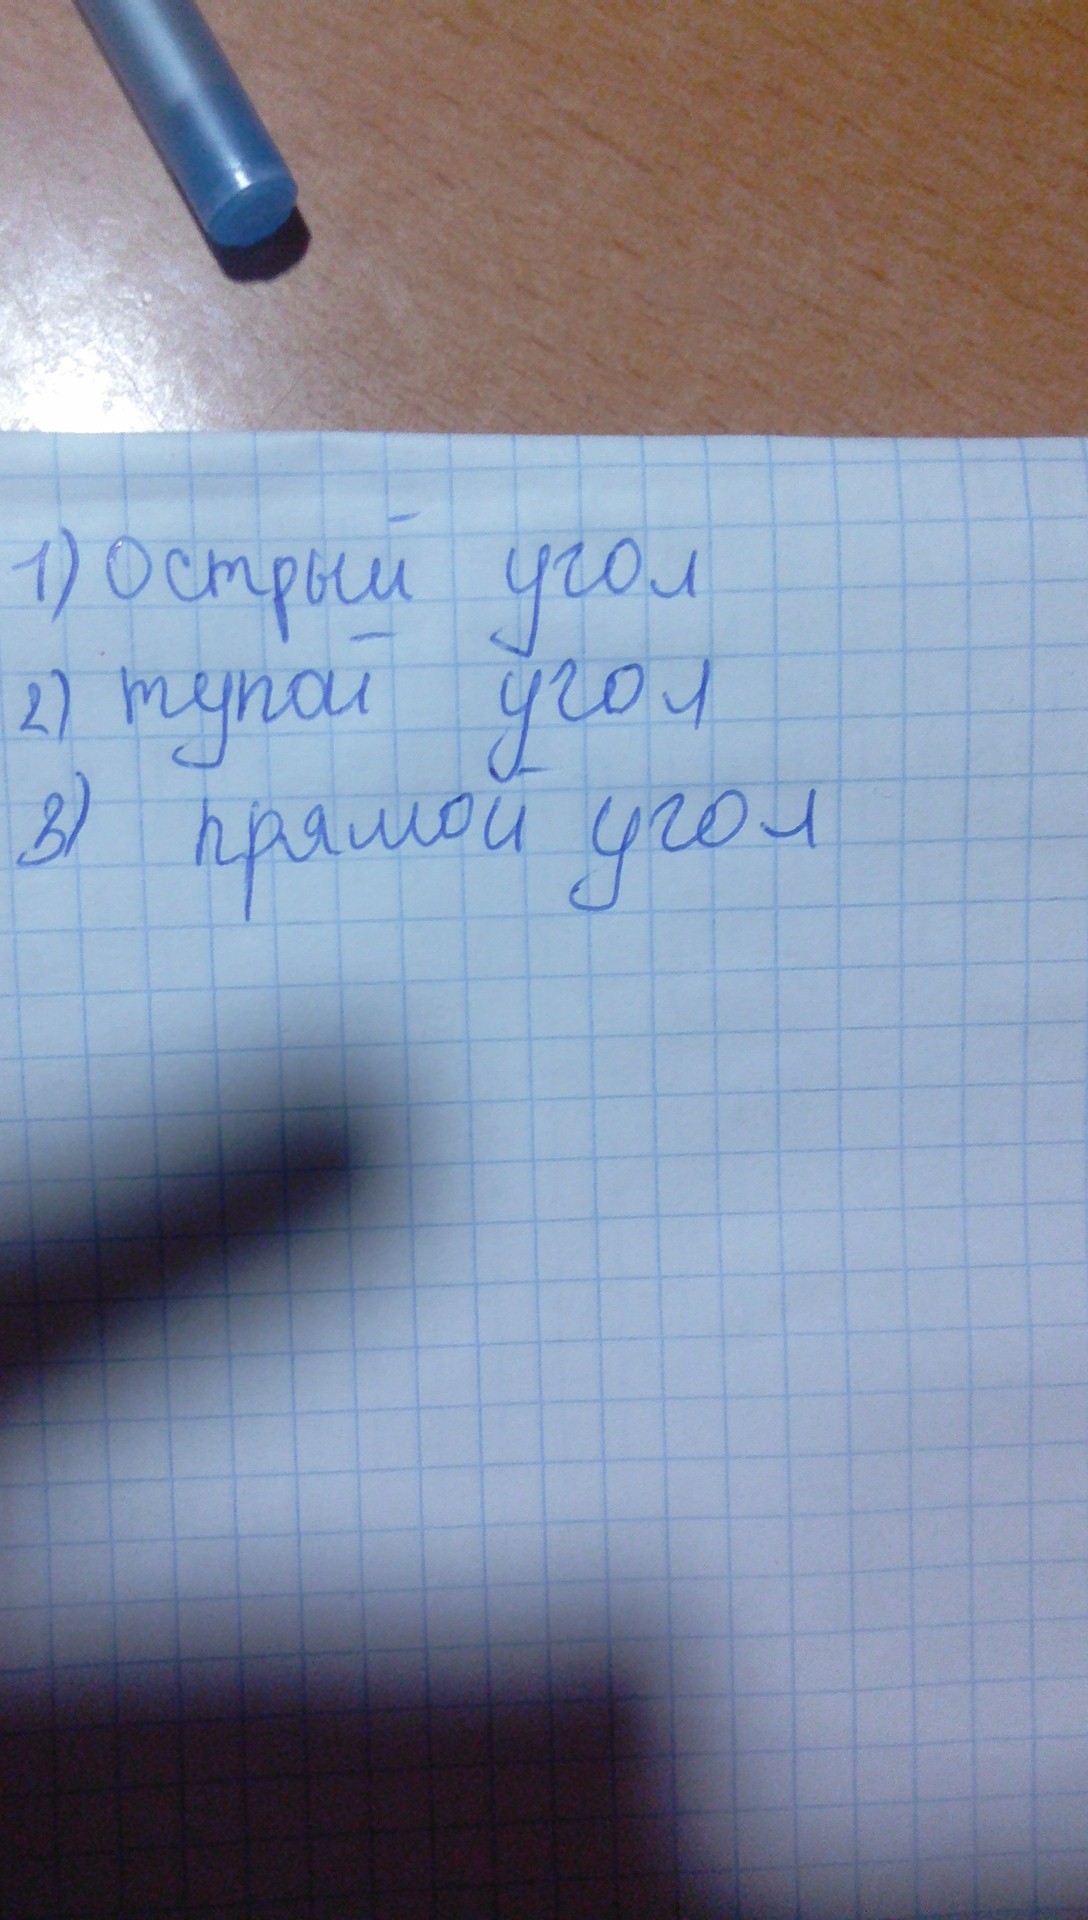 1) Острый угол
2) тупой угол
3) прямой угол